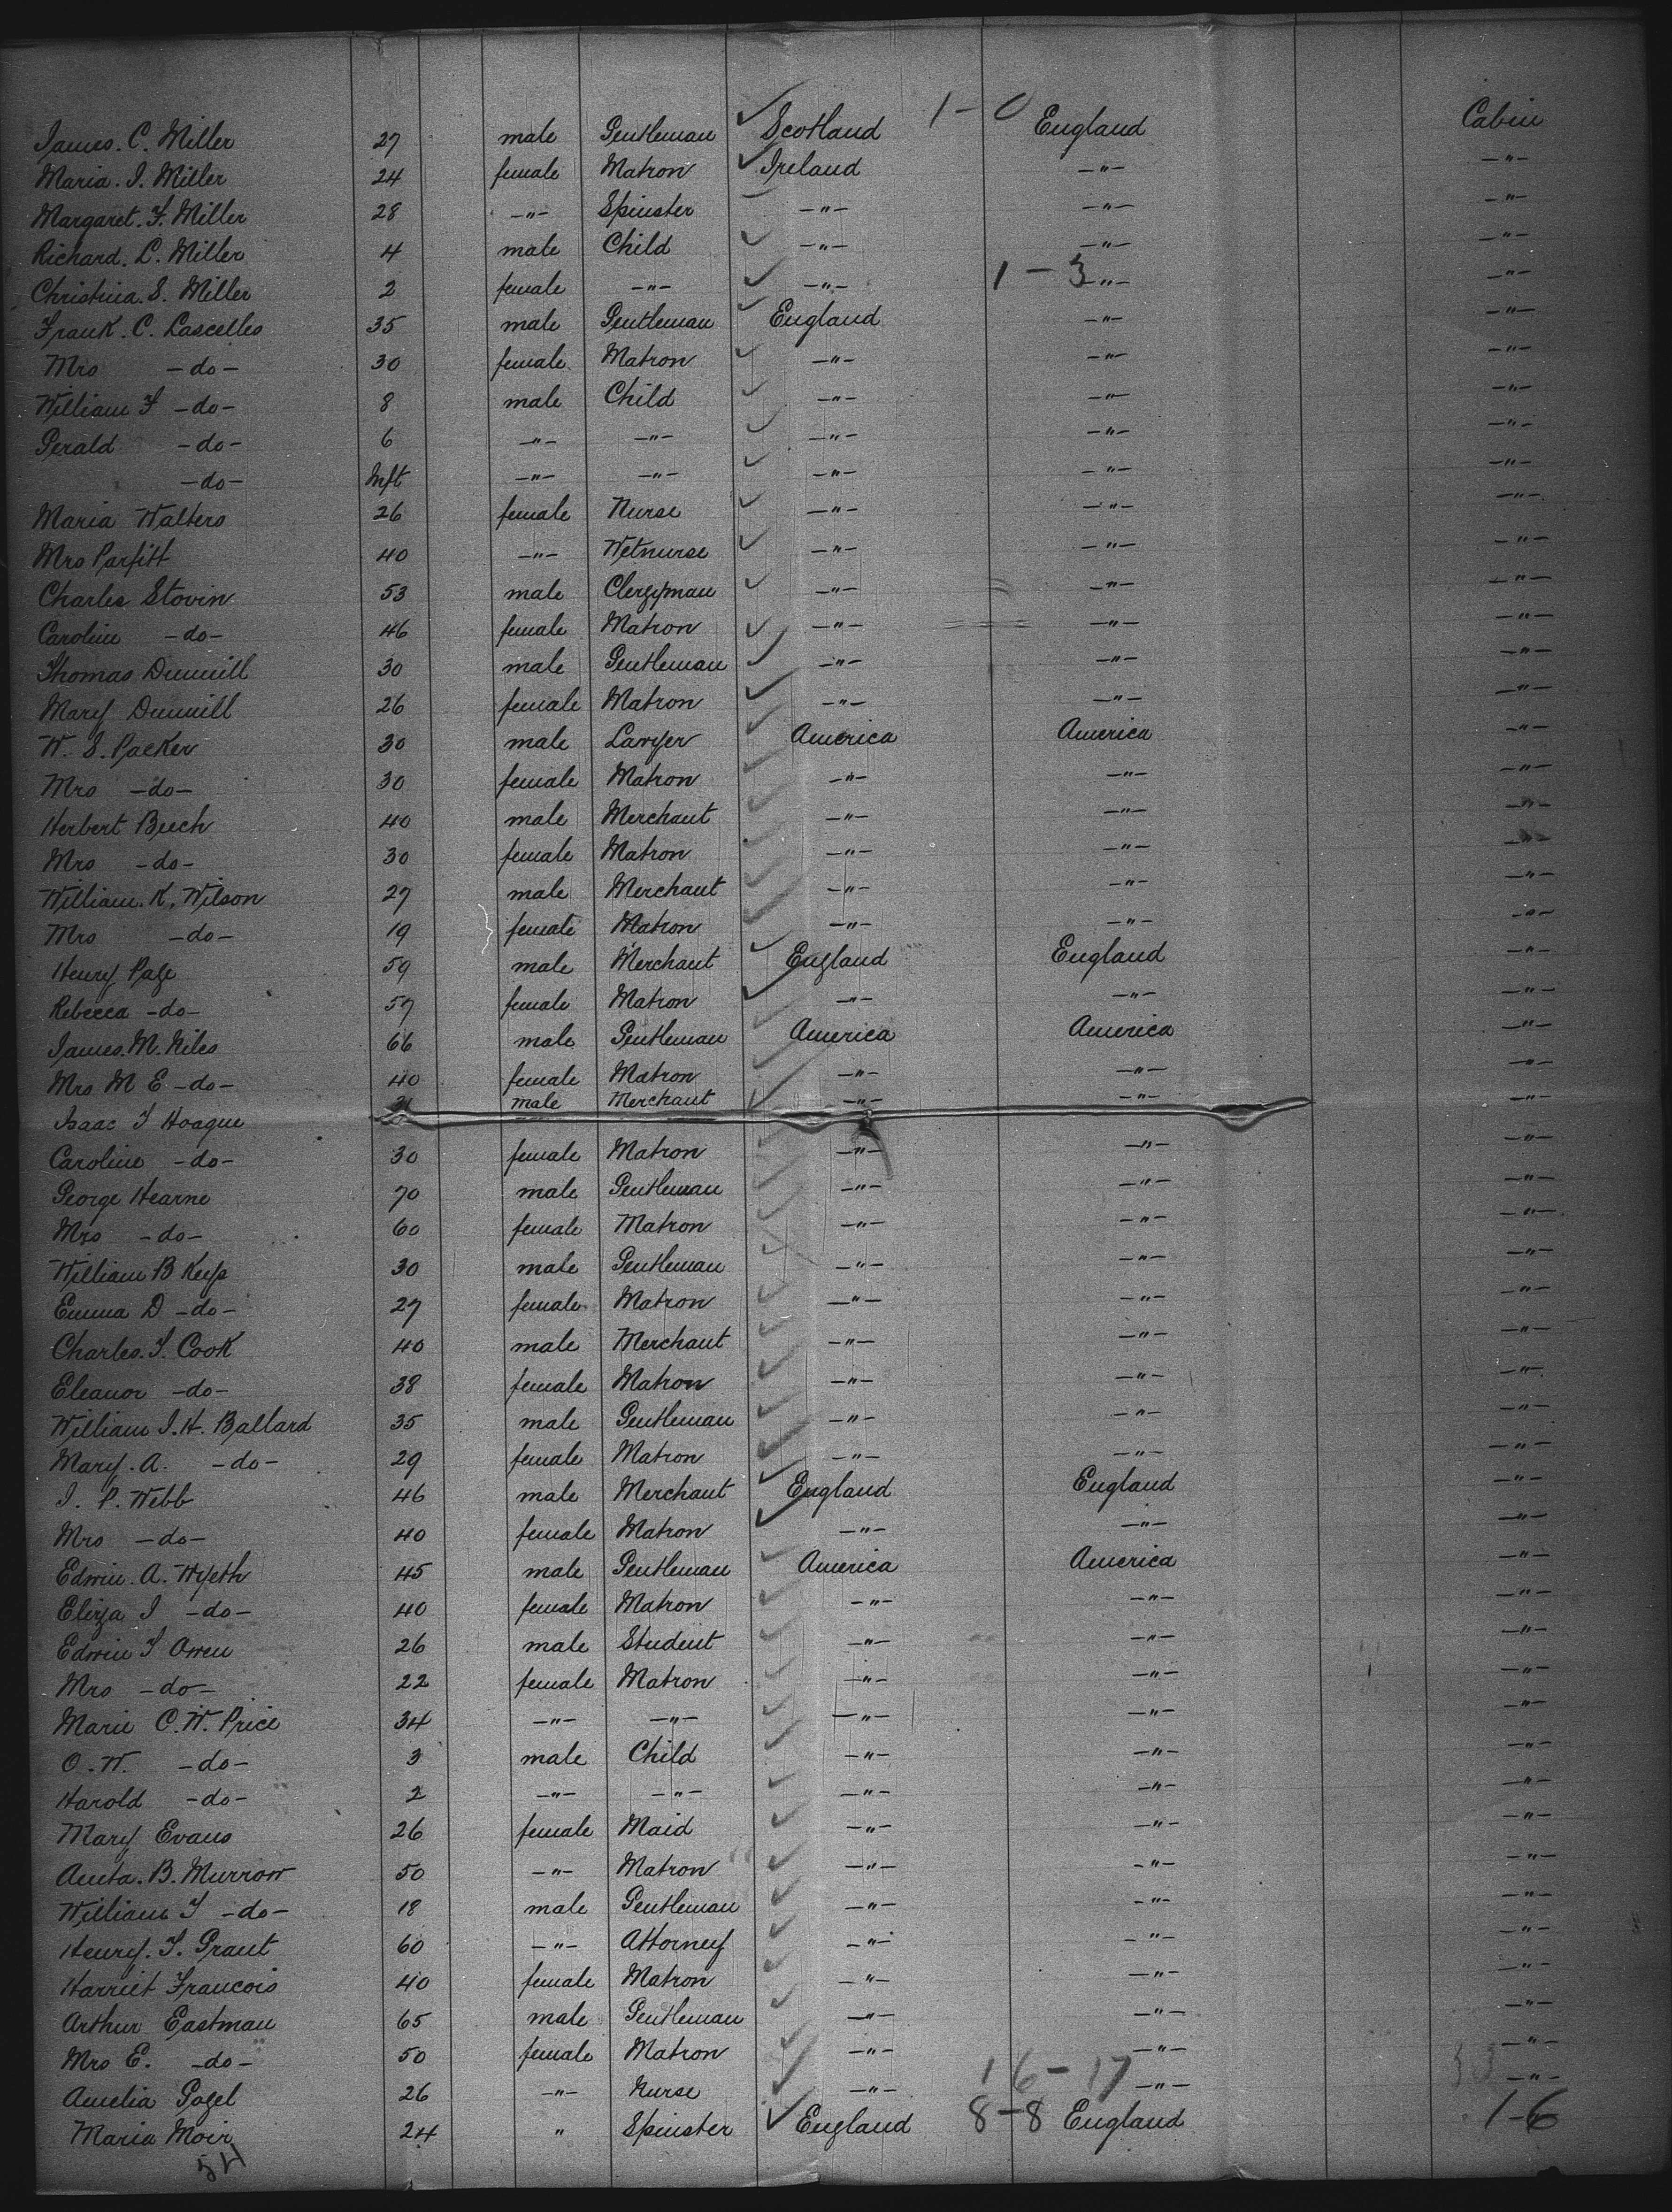 James. C. Miller 27 male Gentleman Scotland 1-0 England Cabin
Maria. I. Miller 24 female Matron Ireland -"- -"-
Margaret. F. Miller 28 -"- Spinster -"- -"- -"-
Richard. L. Miller 4 male Child -"- -"- -"-
Christina. S. Miller 2 female -"- -"- 1-3 -"- -"-
Frank. C. Lascelles 35 male Gentleman England -"- -"-
Mrs -do- 30 female Matron -"- -"- -"-
William F -do- 8 male Child -"- -"- -"-
Gerald -do- 6 -"- -"- -"- -"- -"-
-do- Inft -"- -"- -"- -"- -"-
Maria Walters 26 female Nurse -"- -"- -"-
Mrs Parfitt 40 -"- Wetnurse -"- -"- -"-
Charles Stovin 53 male Clergyman -"- -"- -"-
Caroline -do- 46 female Matron -"- -"- -"-
Thomas Dunnill 30 male Gentleman -"- -"- -"-
Mary Dunnill 26 female Matron -"- -"- -"-
W. S. Packer 30 male Lawyer America America -"-
Mrs -do- 30 female Matron -"- -"- -"-
Herbert Beech 40 male Merchant -"- -"- -"-
Mrs -do- 30 female Matron -"- -"- -"-
William. K. Wilson 27 male Merchant -"- -"- -"-
Mrs -do- 19 female Matron -"- -"- -"-
Henry Page 59 male Merchant England England -"-
Rebecca -do- 57 female Matron -"- -"- -"-
James. M. Niles 66 male Gentleman America America -"-
Mrs M E -do- 40 female Matron -"- -"- -"-
Isaac T Hoague male Merchant -"- -"- -"-
Caroline -do- 30 female Matron -"- -"- -"-
George Hearne 70 male Gentleman -"- -"- -"-
Mrs -do- 60 female Matron -"- -"- -"-
William B Keys 30 male Gentleman -"- -"- -"-
Emma D -do- 27 female Matron -"- -"- -"-
Charles. T. Cook 40 male Merchant -"- -"- -"-
Eleanor -do- 38 female Matron -"- -"- -"-
William J. H. Ballard 35 male Gentleman -"- -"- -"-
Mary. A. -do- 29 female Matron -"- -"- -"-
J. P. Webb 46 male Merchant England England -"-
Mrs -do- 40 female Matron -"- -"- -"-
Edwin. A. Wyeth 45 male Gentleman America America -"-
Eliza J -do- 40 female Matron -"- -"- -"-
Edwin T Owen 26 male Student -"- -"- -"-
Mrs -do- 22 female Matron -"- -"- -"-
Marie C. W. Price 34 -"- -"- -"- -"- -"-
O. W. -do- 3 male Child -"- -"- -"-
Harold -do- 2 -"- -"- -"- -"- -"-
Mary Evans 26 female Maid -"- -"- -"-
B. Murrow 50 -"- Matron -"- -"- -"-
William F -do- 18 male Gentleman -"- -"- -"-
Henry. T. Grant 60 -"- Attorney -"- -"- -"-
Harriet Francois 40 female Matron -"- -"- -"-
Arthur Eastman 65 male Gentleman -"- -"- -"-
Mrs E. -do- 50 female Matron -"- -"- -"-
Amelia Gogel 26 -"- Nurse -"- 16-17 -"- -"-
Maria Moir 24 " Spinster England 8-8 England 1-6
54